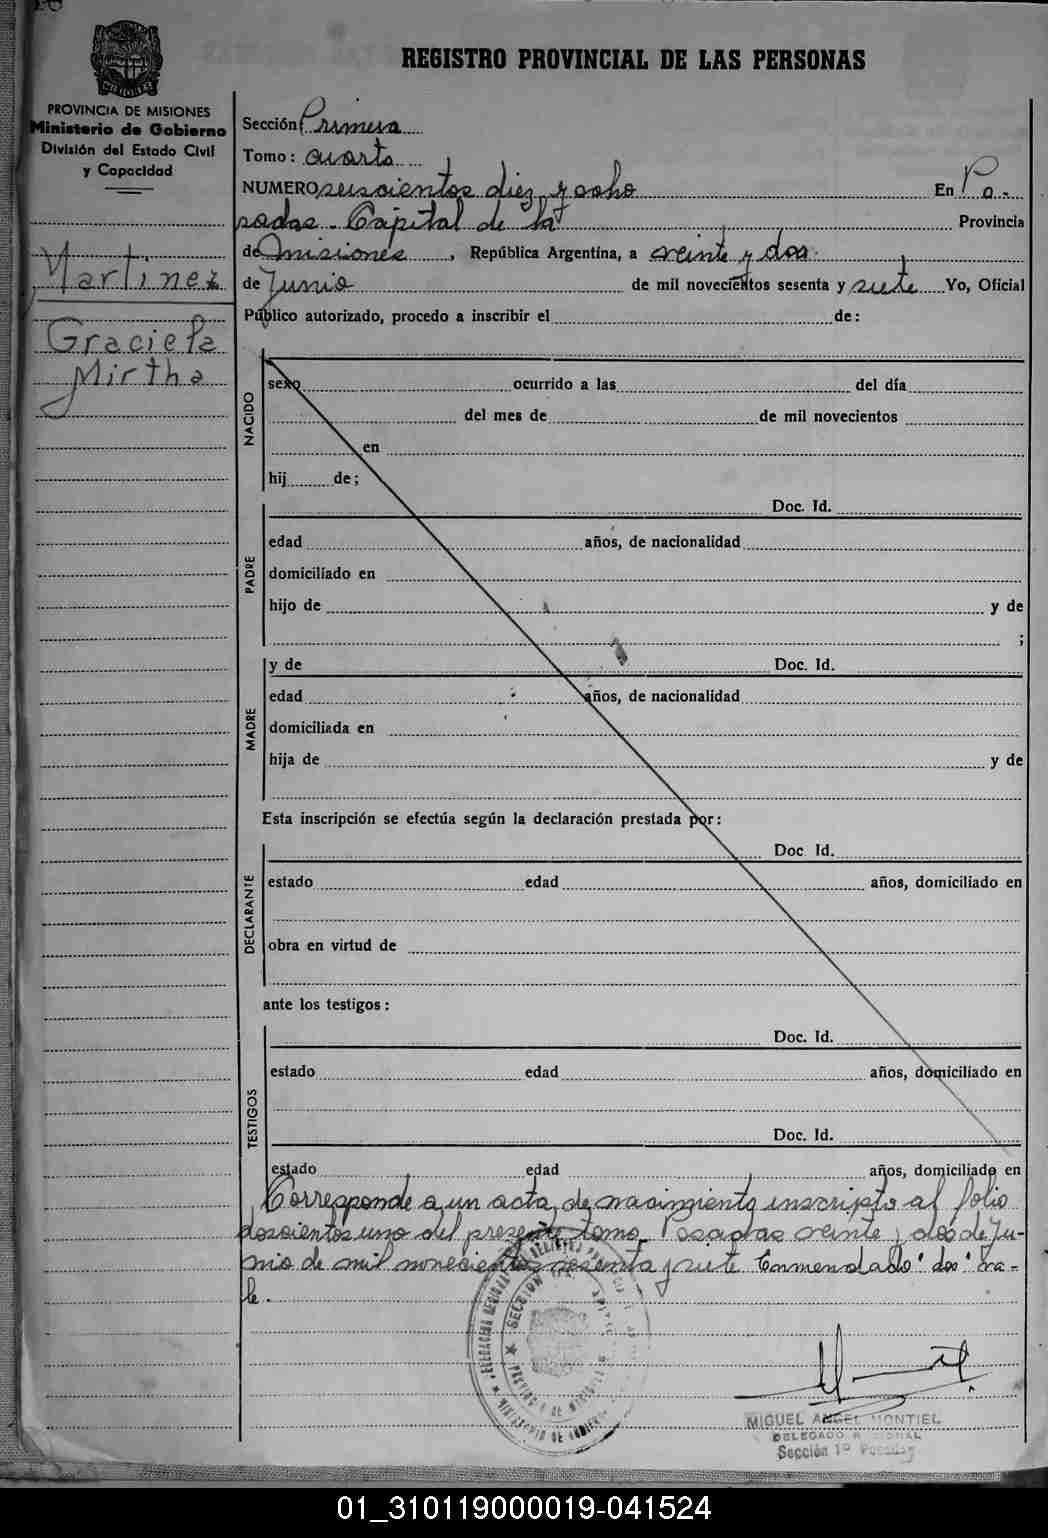 REGISTRO PROVINCIAL DE LAS PERSONAS
PROVINCIA DE MISIONES
Ministerio de Gobierno
División del Estado Civil
y Capacidad
Martinez
Graciela
Mirtha
Sección: Primera
Tomo: cuarto
NUMERO seiscientos diez y ocho En Po-
sadas. Capital de la Provincia
de Misiones, República Argentina, a veinte y dos
de Junio de mil novecientos sesenta y siete Yo, Oficial
Público autorizado, procedo a inscribir el de:
NACIDO
sexo ocurrido a las del día
del mes de de mil novecientos
en
hij de;
PADRE
Doc. Id.
edad años, de nacionalidad
domiciliado en
hijo de y de
;
MADRE
y de Doc. Id.
edad años, de nacionalidad
domiciliada en
hija de y de
Esta inscripción se efectúa según la declaración prestada por:
DECLARANTE
Doc. Id.
estado edad años, domiciliado en
obra en virtud de
ante los testigos:
TESTIGOS
Doc. Id.
estado edad años, domiciliado en
Doc. Id.
estado edad años, domiciliado en
Corresponde a un acta de nacimiento inscripto al folio
doscientos uno del presente tomo. Posadas veinte y dos de Ju-
nio de mil novecientos sesenta y siete Enmendado "dos" va-
le.
SECCION
PROVINCIA DE MISIONES
MINISTERIO DE GOBIERNO
MIGUEL ANGEL MONTIEL
DELEGADO REGIONAL
Sección 1º Posadas
01_310119000019-041524